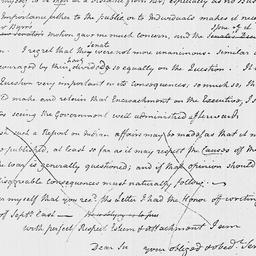 myself to
Importance either to the public, or to Individuals makes it nece
Senator when gave me much concern, and the
Senate
I regret that they were not more unanimous. Similar
couraged by their dividing so equally on the Question. It
Question very important in its consequences; so much so, th
ld make and retain that Encroachment on the Executive, I s
of seeing the Government well administered afterward
such a Report on Indian affairs may be made, as that it m
published, at least so far as it may respect the Causes of th
the war is generally questioned; and if that opinion should
disagreeable consequences must naturally follow.
for myself that you recd. the Letter I had the Honor of writing
of Septr. last —
with perfect Respect Esteem & Attachment I am
Dear Sir your obliged & obedt. Ser